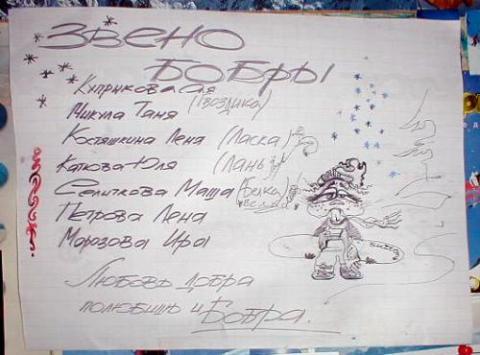 ЗВЕНО
БОБРЫ
Куприкова Оля
Микула Таня (Гвоздика)
Костяшкина Лена (Ласка)
Каткова Юля (Лань)
Селиткова Маша (Белка
Петрова Лена
Морозова Ира
Любовь добра
полюбишь и Бобра.